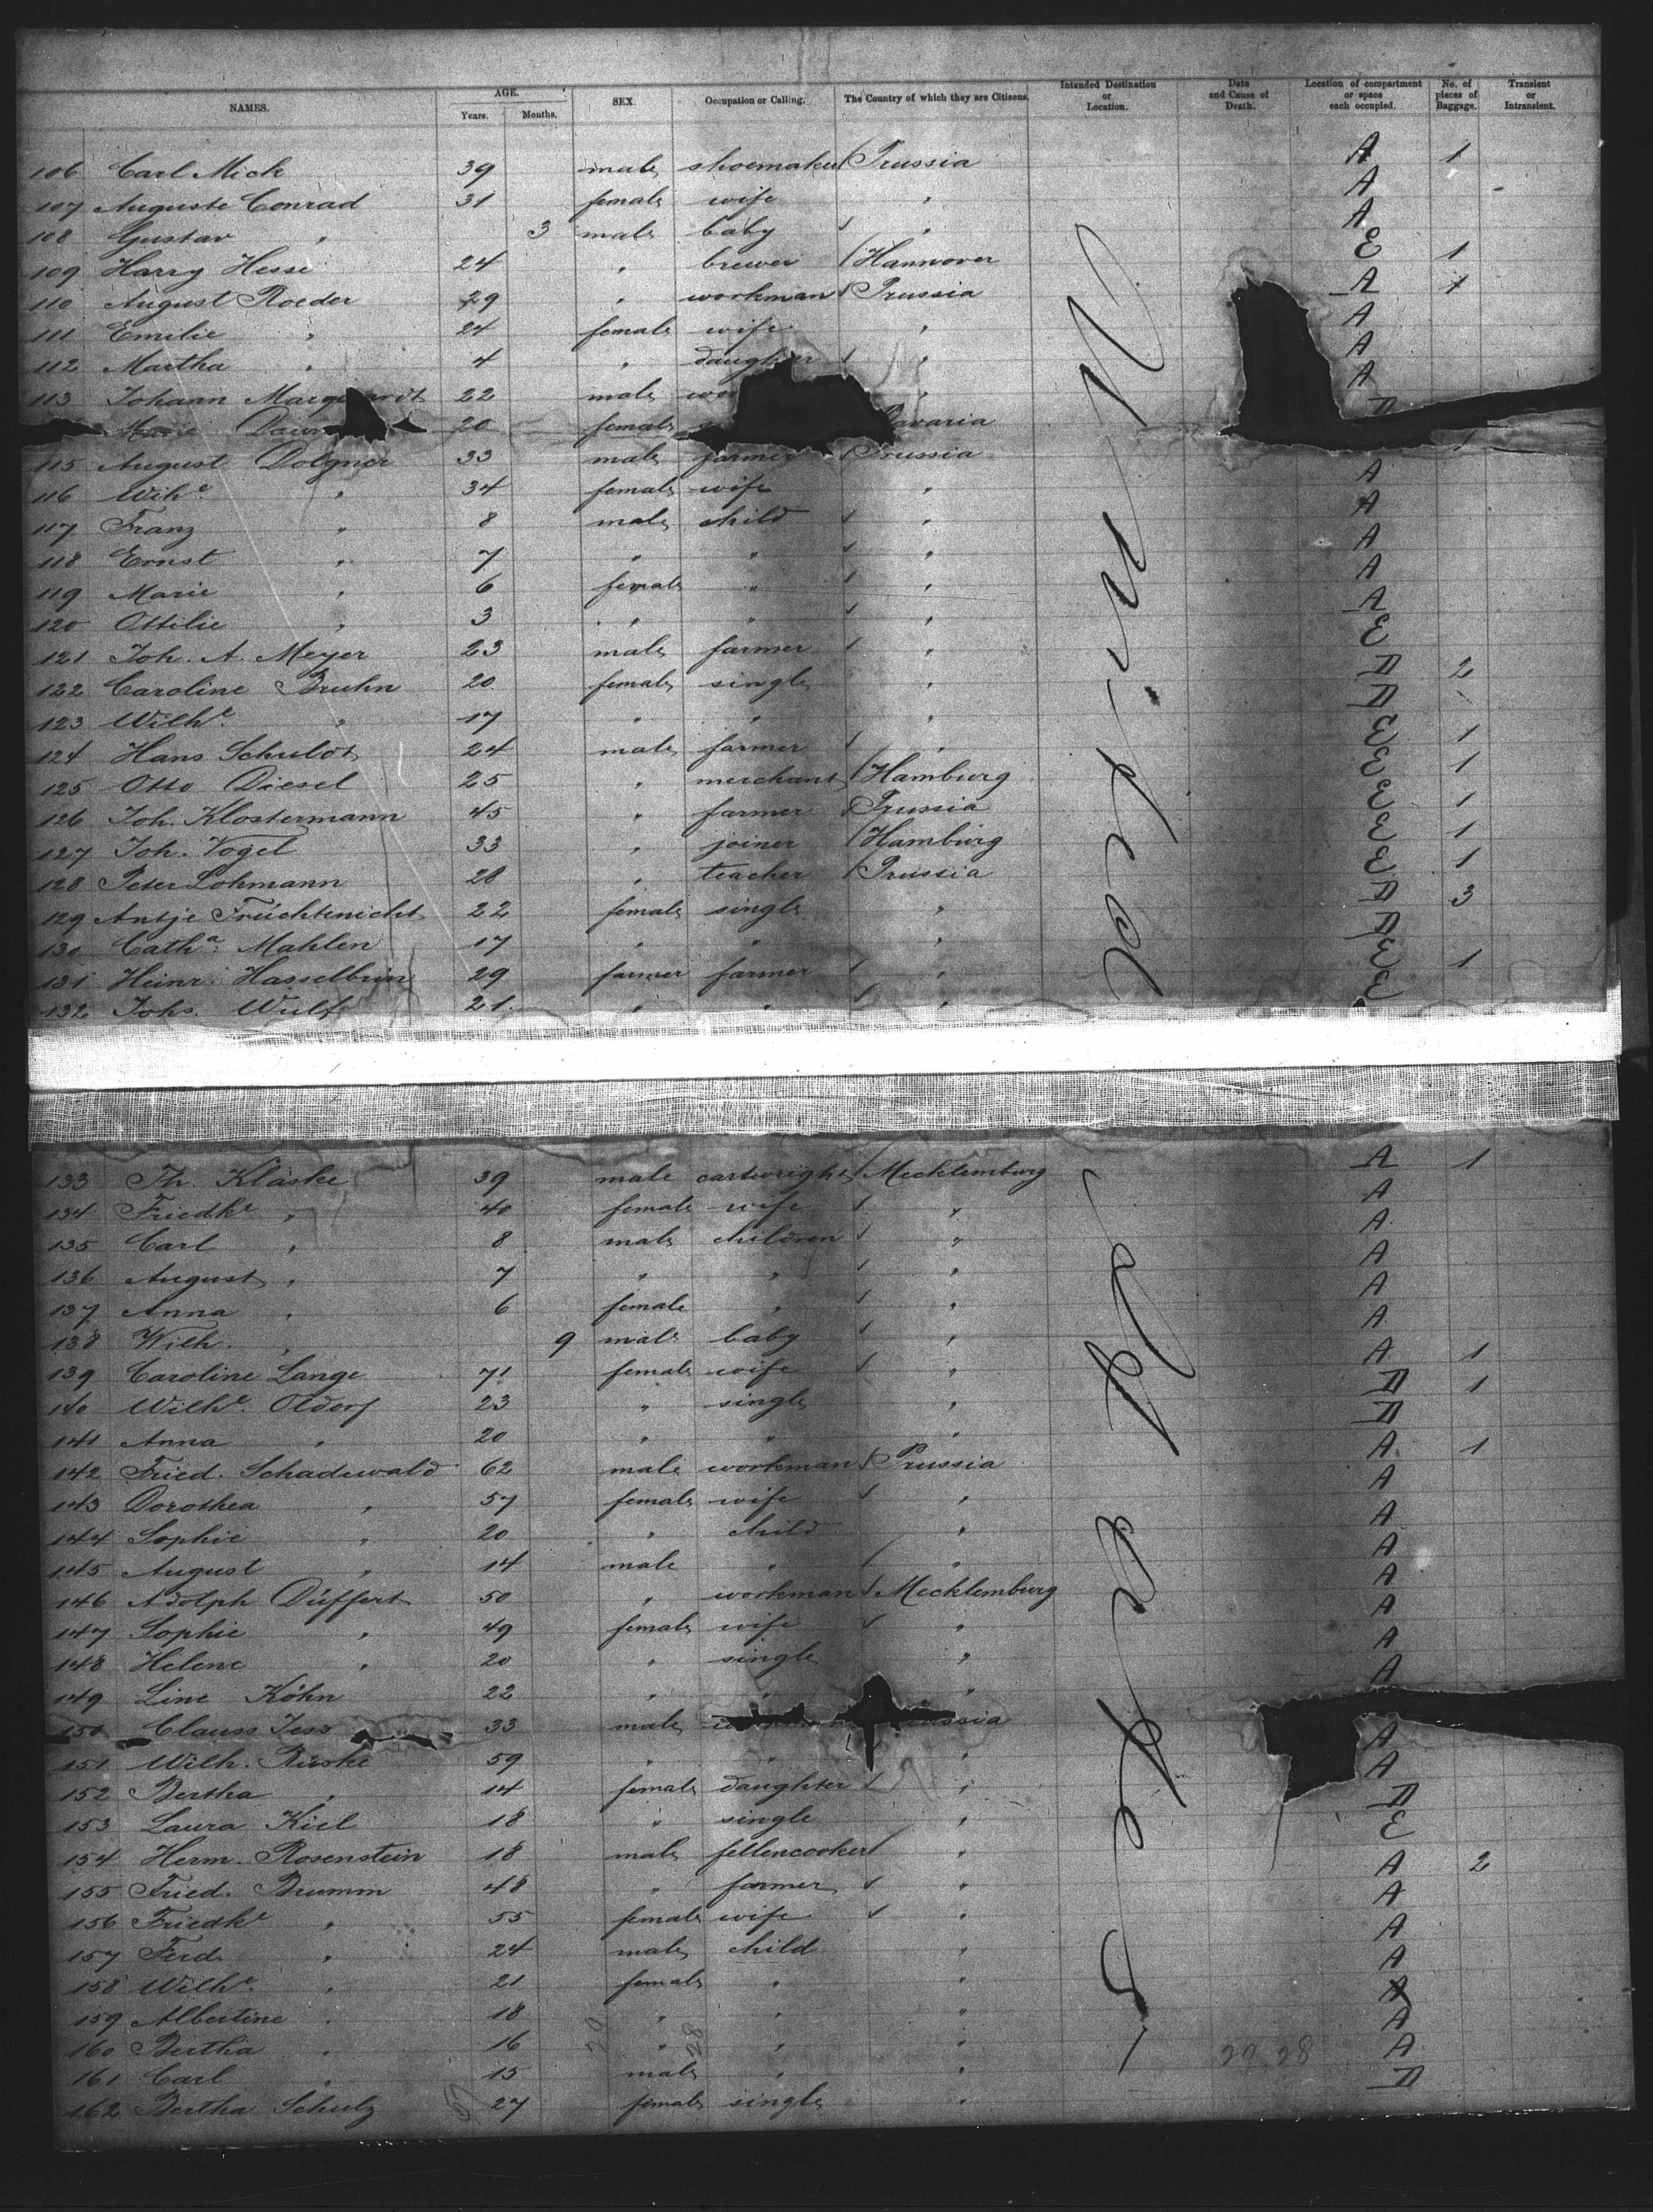 NAMES. AGE. Years. Months. SEX. Occupation or Calling. The Country of which they are Citizens. Intended Destination or Location. Date and Cause of Death. Location of compartment or space each occupied. No. of pieces of Baggage. Transient or Intransient.
106 Carl Mick 39 male shoemaker Prussia A 1
107 Auguste Conrad 31 female wife " A
108 Gustav " 3 male baby " A
109 Harry Hesse 24 " brewer Hannover E 1
110 August Roeder 29 " workman Prussia A 1
111 Emilie " 24 female wife " A
112 Martha " 4 " daughter " A
113 Johann Marquardt 22 male " A
Marie 20 female Bavaria D
115 August Dolgner 33 male farmer Prussia 1
116 Wihe. " 34 female wife " A
117 Franz " 8 male child " A
118 Ernst " 7 " " " A
119 Marie " 6 female " " A
120 Ottilie " 3 " " " A
121 Joh. A. Meyer 23 male farmer " E
122 Caroline Bruhn 20 female single " D 2
123 Wilhe. " 17 " " " D
124 Hans Schuldt 24 male farmer " E 1
125 Otto Diesel 25 " merchant Hamburg E 1
126 Joh. Klostermann 45 " farmer Prussia E 1
127 Joh. Vogel 33 " joiner Hamburg E 1
128 Peter Lohmann 28 " teacher Prussia E 1
129 Antje Früchtenicht 22 female single " D 3
130 Catha. Mahlen 17 " " " D
131 Heinr. Hasselbring 29 farmer farmer " E 1
132 Johs. Wulf 21 " " " E
133 Th. Kläske 39 male cartwright Mecklemburg A 1
134 Friedke " 40 female wife " A
135 Carl " 8 male children " A
136 August " 7 " " " A
137 Anna " 6 female " " A
138 Wilh. " 9 male baby " A
139 Caroline Lange 71 female wife " A 1
140 Wilhe. Oldorf 23 " single " D 1
141 Anna " 20 " " " D
142 Fried. Schadewald 62 male workman Prussia A 1
143 Dorothea " 57 female wife " A
144 Sophie " 20 " child " A
145 August " 14 male " " A
146 Adolph Düffert 50 " workman Mecklemburg A
147 Sophie " 49 female wife " A
148 Helene " 20 " single " A
149 Line Köhn 22 " " " A
150 Clauss Jess 33 male Prussia
151 Wilh. Rüske 59 " " " A
152 Bertha " 14 female daughter " A
153 Laura Kiel 18 " single " D
154 Herm. Rosenstein 18 male fettencooker " E
155 Fried. Brumm 48 " farmer " A 2
156 Friedke " 55 female wife " A
157 Ferd. " 24 male child " A
158 Wilhe. " 21 female " " A
159 Albertine " 18 " " " A
160 Bertha " 16 " " " A
161 Carl " 15 male " " A
162 Bertha Schulz 27 female single " D
29.28